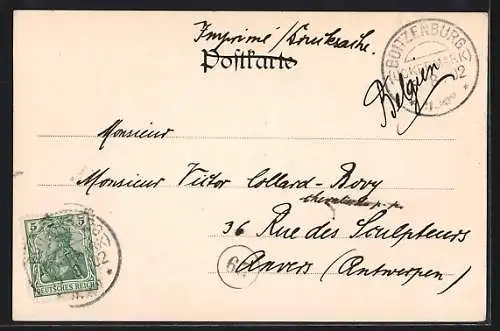 Imprimé / Drucksache.
Postkarte
BOITZENBURG
Belgien
Monsieur
Monsieur Victor Collard-Bovy
36 Rue des Sculpteurs
Anvers (Antwerpen)
5 5
DEUTSCHES REICH